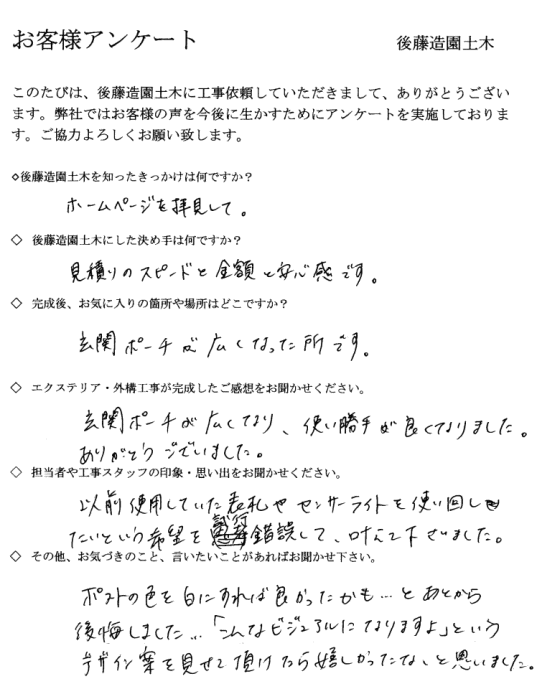 お客様アンケート
後藤造園土木
このたびは、後藤造園土木に工事依頼していただきまして、ありがとうござい
ます。弊社ではお客様の声を今後に生かすためにアンケートを実施しておりま
す。ご協力よろしくお願い致します。
◇後藤造園土木を知ったきっかけは何ですか?
ホームページを拝見して。
◇ 後藤造園土木にした決め手は何ですか?
見積りのスピードと金額と安心感です。
◇ 完成後、お気に入りの箇所や場所はどこですか?
玄関ポーチが広くなった所です。
◇ エクステリア・外構工事が完成したご感想をお聞かせください。
玄関ポーチが広くなり、使い勝手が良くなりました。
ありがとうございました。
◇ 担当者や工事スタッフの印象・思い出をお聞かせください。
以前使用していた表札やセンサーライトを使い回し
たいという希望を試行錯誤して、叶えて下さいました。
◇ その他、お気づきのこと、言いたいことがあればお聞かせ下さい。
ポストの色を白にすれば良かったかも…とあとから
後悔しました…「こんなビジュアルになりますよ」という
デザイン案を見せて頂けたら嬉しかったな、と思いました。